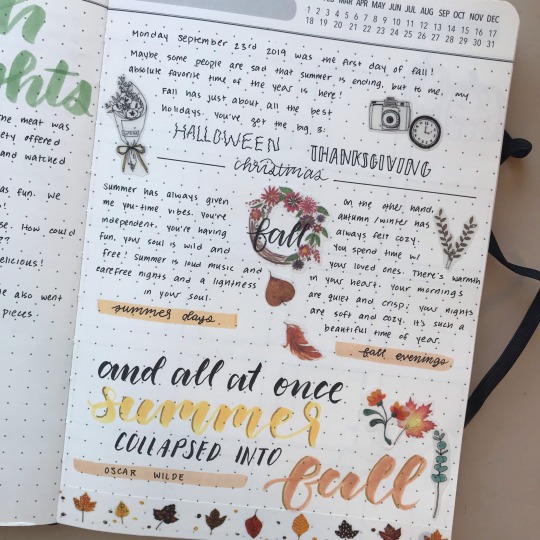 MAR APR MAY JUN JUL AUG SEP OCT NOV DEC
1 2 3 4 5 6 7 8 9 10 11 12 13 14 15 16 17
18 19 20 21 22 23 24 25 26 27 28 29 30 31
Monday September 23rd 2019 was the first day of fall!
Maybe some people are sad that summer is ending, but to me, my
absolute favorite time of the year is here!
Fall has just about all the best
holidays. you've got the big 3:
HALLOWEEN
THANKSGIVING
christmas
summer has always given
me you-time vibes. you're
independent, you're having
fun, your soul is wild and
free! summer is loud music and
carefree nights and a lightness
in your soul.
summer days.
fall
On the other hand,
autumn/winter has
always felt cozy.
You spend time w/
your loved ones. There's warmth
in your heart. Your mornings
are quiet and crisp, your nights
are soft and cozy. it's such a
beautiful time of year.
fall evenings
and all at once
summer
COLLAPSED INTO
fall
OSCAR WILDE
ghts
he meat was
ety offered
and watched
as fun. We
se. How could
??
elicious!
e also went
pieces.